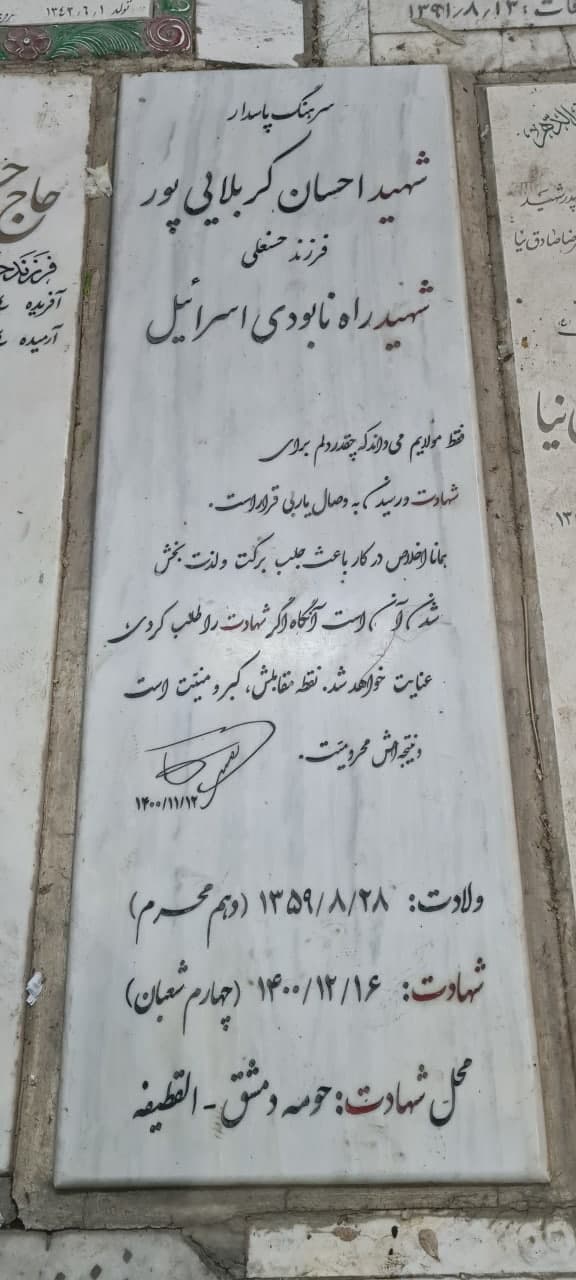 تولد ۱۳۴۲/۶/۱
۱۳۹۱/۸/۱۳
سرهنگ پاسدار
شهید احسان کربلایی پور
فرزند حسنعلی
شهید راه نابودی اسرائیل
فقط مولایم می‌داند که چقدر دلم برای
شهادت و رسیدن به وصال یار بی قرار است.
همانا اخلاص در کار باعث جلب برکت و لذت بخش
شدن آن است آنگاه اگر شهادت را طلب کردی
عنایت خواهد شد. نقطه مقابلش، کبر و منیت است
و نتیجه اش محرومیت.
۱۴۰۰/۱۱/۱۲
ولادت: ۱۳۵۹/۸/۲۸ (دهم محرم)
شهادت: ۱۴۰۰/۱۲/۱۶ (چهارم شعبان)
محل شهادت: حومه دمشق - القطیفه
حاج
آفریده
آرمیده
پدر شهید
رضا صادق نیا
نیا